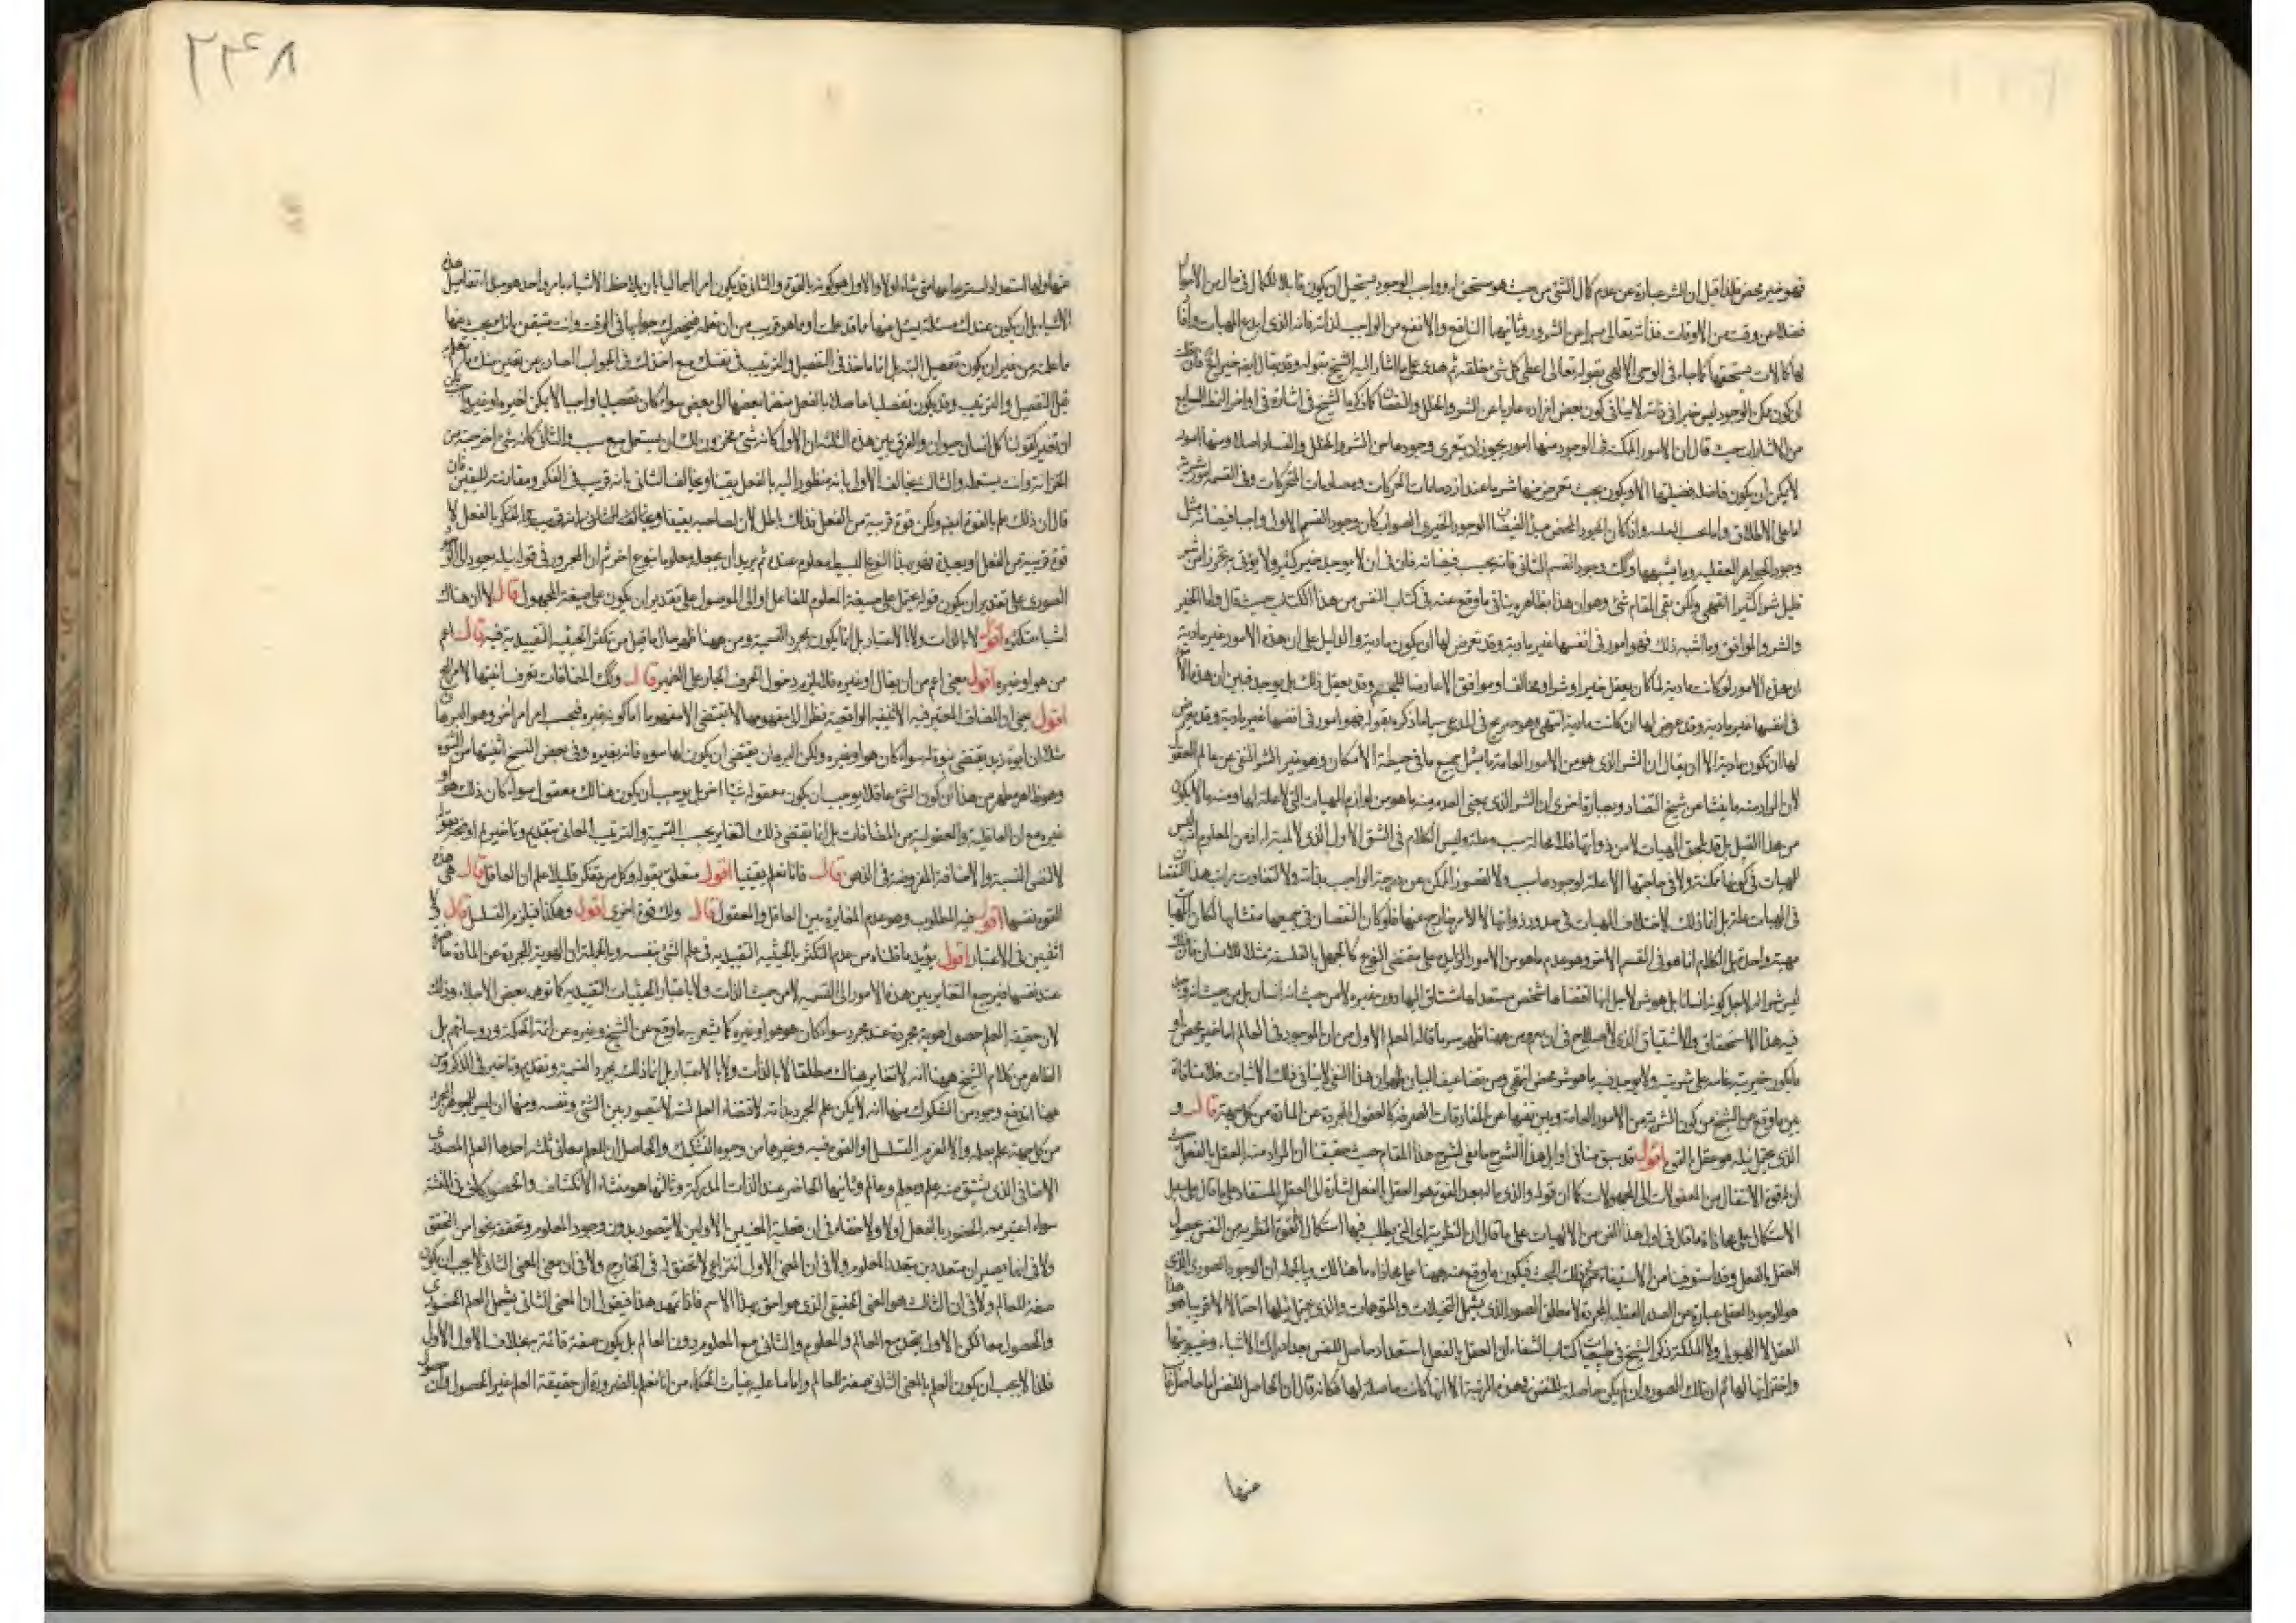 فهو خير محض فلذا قيل ان الشر عبارة عن عدم كمال الشئ من حيث هو مستحق له وواجب الوجود يستحيل ان يكون فاقدا لكمال في حال من الاحوال
فضلا من وقت من الاوقات فذاته تعالى مبرا من الشرور وثانيهما النافع والانفع من الواجب لذاته فانه الذي ابدع المهيات وافا
لها كمالات يستحقها كما جاء في الوحي الالهي بقوله تعالى اعطى كل شئ خلقه ثم هدى على ما اشار اليه الشيخ بقوله وقد يقال ايضا خير الخ فان قلت
ان كون ممكن الوجود ليس خيرا في ذاته لا ينافي كون بعض افراده عاريا عن الشر والخلل والنقصان كما ذكره الشيخ في اشارة في اواخر النمط السابع
من الاشارات حيث قال ان الامور الممكنة في الوجود منها امور يجوز ان يتعرى وجودها من الشر والخلل والفساد اصلا ومنها امور
لا يمكن ان يكون فاضلة فضيلتها الا ويكون بحيث تعرض منها شر ما عند ازدحامات الحركات ومصادمات المتحركات وفي القسمة امور شرية
اما على الاطلاق واما بحسب الغلبة واذا كان الجود المحض مبدأ لفيضان الوجود الخيري الصواب كان وجود القسم الاول واجبا فيضانه مثل
وجود الجواهر العقلية وما يشبهها وكذلك وجود القسم الثاني فانه يجب فيضانه فان في ان لا يوجد خير كثير ولا يؤتى به تحرزا من شر
قليل شرا كثيرا انتهى ولكن بقي المقام شئ وهو ان هذا بظاهره ينافي ما وقع عنه في كتاب النفس من هذا الكتاب حيث قال واما الخير
والشر والموافق وما اشبه ذلك فهو امور في انفسها غير مادية وقد تعرض لها ان يكون مادية والدليل على ان هذه الامور غير مادية
ان هذه الامور لو كانت مادية لما كان يعقل خير او شر او مخالف او موافق الا عارضا للجسم وقد يعقل ذلك بل يوجد فبين ان هذه الامور
في انفسها غير مادية وقد عرض لها ان كانت مادية انتهى وهو صريح في المدعى سيما ما ذكره بقوله فهو امور في انفسها غير مادية وقد يعرض
لها ان تكون مادية الا ان يقال ان الشر الذي هو من الامور العامة ما يشمل جميع ما في حيطة الامكان وهو غير الشر المنفي عن عالم العقل
لان المراد منه ما ينشا عن شيخ التضاد وبعبارة اخرى ان الشر الذي بمعنى العدم منه ما هو من لوازم المهيات التي لا علة لها ومنه ما لا يكون
من هذا القبيل بل قد يلحق المهيات لا من ذواتها فلا محالة سبب وعلة وليس الكلام في الشق الاول الذي لا لمية له اذ من المعلوم انه ليس
للمهيات في كونها ممكنة ولا في حاجتها الا علة لوجودها سبب ولا لقصور الممكن عن درجة الواجب بذاته ولا لتفاوت مراتب هذا النقصان
في المهيات علة بل انما ذلك لاختلاف المهيات في حدود ذواتها لا لامر خارج عنها فلو كان النقصان في جميعها متشابها لكان المهيات
مهية واحدة بل الكلام انما هو في القسم الاخر وهو عدم ما هو من الامور الزايدة على مقتضى النوع كالجهل بالفلسفة مثلا للانسان فان ذلك
ليس شرا له لاجل كونه انسانا بل هو شر لاجل انها اقتضاها شخص مستعد لها مشتاق اليها دون غيره لا من حيث انه انسان بل من حيث انه وجد
فيه هذا الاستحقاق والاشتياق الذي لا يصلح في ان يعم ومن ههنا ظهر سر ما قاله المعلم الاول من ان الموجود في العالم اما خير محض او
ما يكون خيريته غالبة على شريته ولا يوجد فيه ما هو شر محض انتهى ومن تضاعيف البيان ظهر ان هذا النفي لا ينافي ذلك الاثبات فلا منافاة
بين ما وقع من الشيخ من كون الشر من الامور العامة وبين نفيها عن المفارقات الصرفة كالعقول المجردة عن المادة من كل جهة قال و
الذي يحتمل نيله هو عقل بالقوة اقول قد سبق منا في اوايل هذا الشرح ما بقي لشرح هذا المقام حيث حققنا ان المراد منه العقل بالفعل
ان قوة الانتقال من المعقولات الى المجهولات كما ان قوله والذي ناله بعد القوة هو العقل بالفعل اشارة الى العقل المستفاد على ما قال على سبيل
الاستكمال على محاذاة ما قال في اول هذا الفن من الالهيات على ما قال ان النظرية اي التي يطلب فيها استكمال القوة النظرية من النفس بحصول
العقل بالفعل وقد استوفينا من الاستيفاء شرح ذلك البحث فيكون ما وقع عنه ههنا على محاذاة ما هنالك وبالجملة ان الوجود الصوري الذي
هو الوجود العقلي عبارة عن الصور العقلية المجردة لا مطلق الصور الذي يشمل التخيلات والمتوهمات والذي يحتمل نيلها احتمالا قريبا هو هذا
العقل لا الهيولى ولا الملكة ذكر الشيخ في طبيعيات كتاب الشفاء ان العقل بالفعل استعداد حاصل للنفس بعد ادراك الاشياء وغيبوبتها
واختزانها لها ثم ان تلك الصور وان لم يكن حاصلة للنفس في هذه المرتبة الا انها كانت حاصلة لها فكانه قال ان الحاصل للنفس اما حاصل
منها
٢٢٤٨
منها ولها استعداد استرجاعها متى شاء اولا والاول هو كونه بالقوة والثاني قد يكون امرا اجماليا بان يلاحظ الاشياء بامر واحد هو مبدا تفاصيل هذه
الاشياء بل ان يكون عندك مسئلة يسئل عنها ما قد علمت او ما هو قريب من ان تعلمه فيحضرك جوابها في الوقت وانت متيقن بانك تجيب عنها
ما علمته من غير ان يكون تفصيل البتة بل انما تاخذ في التفصيل والترتيب في نفسك مع اخذك في الجواب الصادر عن يقين منك بالعلم به
قبل التفصيل والترتيب وقد يكون تفصيليا حاصلا بالفعل منضما بعضها الى بعض سواء كان تفصيليا واجبا لا يمكن اخيره او غيره يمكن
ان تغير كقولنا كل انسان حيوان والفرق بين هذه الثلثة ان الاول كانه شئ مخزون لك ان يستعمل مع سبب والثاني كانه شئ اخرجته من
الخزانة وانت يستعمله والثالث يخالف الاول بانه منظور اليه بالفعل يقينا ويخالف الثاني بانه قريب في الفكر ومقارنته لليقين فان
قال ان ذلك علم بالقوة ايضا ولكن قوة قريبة من الفعل فذلك باطل لان لصاحبه يقينا ويخالف الثاني انه قريب بالفكر بالفعل لا
قوة قريبة من الفعل او بعيدة فهو بهذا النوع البسيط معلوم عنده ثم يريد ان يجعله معلوما بنوع اخر ثم ان المجرور في قوله نيله بوجود له
الصوري على تقدير ان يكون قوله يحتمل على صيغة المعلوم للفاعل او الى الموصول على تقدير ان يكون على صيغة المجهول قال لا ان هناك
اشياء متكثرة اقول لا بالذات ولا بالاعتبار بل انما يكون بمجرد التسمية ومن ههنا ظهر حال ما قيل من تكثر الحيثية التقييدية فيه قال اعم
من هو او غيره اقول معنى اعم من ان يقال او غيره فلا يلزم دخول الحرف الجار على الضمير قال وكذلك المضافات تعرف اثنيتها لامر الخ
اقول يعني ان المضاف المعتبر فيه الاثنينية الواقعية نظرا الى مفهومها لا يقتضي الا مفهوما اما كونه بغيره فبحسب امر اخر وهو البرهان
مثلا ان ابوة زيد يقتضي بنوة له سواء كان هو او غيره ولكن البرهان يقتضي ان يكون لها سوه فانه بغيره وفي بعض النسخ اثنيتها من البنوة
وهو ظاهر فظهر من هذا ان كون الشئ عاقلا يوجب ان يكون معقوله شيئا اخر بل يوجب ان يكون هنالك معقول سواء كان ذلك هو او
غيره مع ان العاقلية والمعقولية من المضافات بل انما يقتضي ذلك التغاير بحسب التسمية والترتيب المعاني بتقديم وتاخير لها او بحذفها
لا لنفس النسبة والاضافة المفروضة في الذهن قال فانا نعلم يقينا اقول متعلق بقوله وكل من تفكر قليلا علم ان العاقل قال هي هذه
القوة نفسها اقول فيه المطلوب وهو عدم المغايرة بين العاقل والمعقول قال ولك قوة اخرى اقول وهكذا فيلزم التسلسل قال لا في
اثنين في الاعتبار اقول يؤيد ما قلناه من عدم التكثر بالحيثية التقييدية في علم الشئ بنفسه وبالجملة ان الهوية المجردة عن المادة حاضرة
عند نفسها فيرجع التغاير بين هذه الامور الى التسمية لا من حيث الذات ولا باعتبار الحيثيات التقييدية كما توهمه بعض الاجلاء وذلك
لان حقيقة العلم حصول هوية مجردة عند مجرد سواء كان هو هو او غيره كما يشعر به ما وقع عن الشيخ وغيره عن ائمة الحكمة ورؤسائهم بل
الظاهر من كلام الشيخ ههنا انه لا تغاير هناك مطلقا لا بالذات ولا بالاعتبار بل انما ذلك بمجرد التسمية وتقديم وتاخير في الذكر ومن
ههنا اندفع وجوه من الشكوك منها انه لا يمكن علم المجرد بذاته لاقتضاء العلم نسبة لا يتصور بين الشئ ونفسه ومنها ان ليس للجوهر المجرد
من كل جهة علم بعلمه والا لزم التسلسل او القوة فيه وغيرها من وجوه التشكيك والحاصل ان للعلم معاني ثلثة احدها العلم المصدري
الاضافي الذي يشتق منه علم ويعلم وعالم وثانيها الحاضر عند الذات المدركة وثالثها هو منشاء الانكشاف والحضور كما في اللغة
سواء اعتبر معه الحضور بالفعل اولا ولا خفاء في ان فعلية المعنيين الاولين لا يتصور بدون وجود المعلوم وتحققه نحوا من التحقق
ولا في انهما يصيران متعددين بتعدد المعلوم ولا في ان المعنى الاول انتزاعي لا تحقق له في الخارج ولا في ان معنى المعنى الثاني لا يجب ان يكون
صفة للعالم ولا في ان الثالث هو المعنى الحقيقي الذي هو احق بهذا الاسم فاذا تمهد هذا فيقول ان المعنى الثاني يشمل العلم الحضوري
والحصول معا لكن الاول يتحد مع العالم والمعلوم والثاني مع المعلوم دون العالم بل يكون صفة قائمة به بخلاف الاول الاول
فلذا لا يجب ان يكون العلم بالمعنى الثاني صفة للعالم واما ما عليه غياث الحكماء من انا نعلم بالضرورة ان حقيقة العلم غير الحصول وان